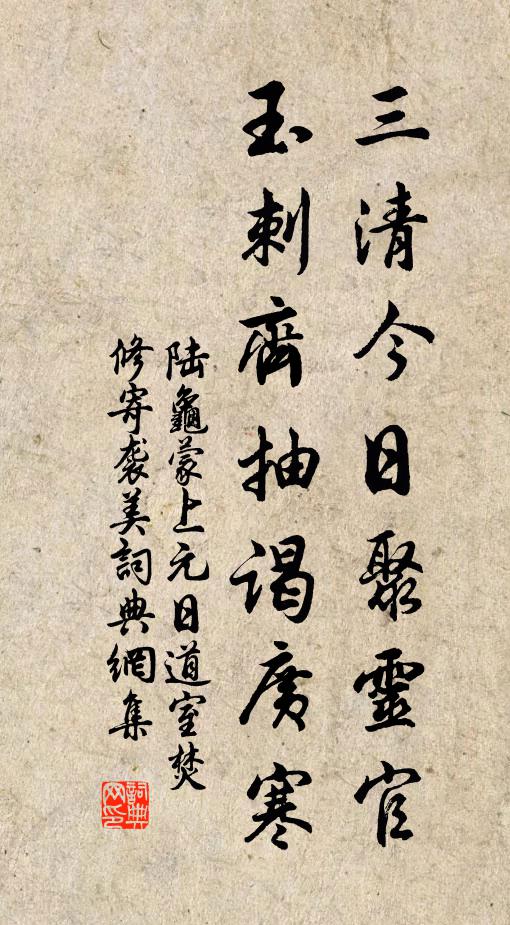 三清今日聚靈官
玉刺齊抽謁廣寒
陆龜蒙上元日道室焚
修寄袭美詞典網集
詞典网印